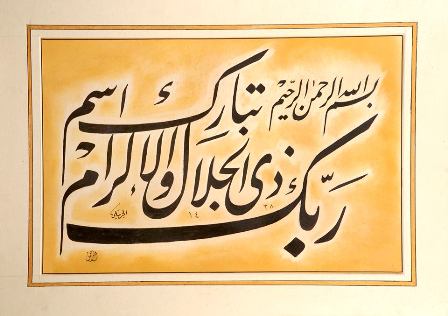 بسم الله الرحمن الرحیم
تبارك اسم
ربّك ذی الجلال والإکرام
١٤ ٢٨